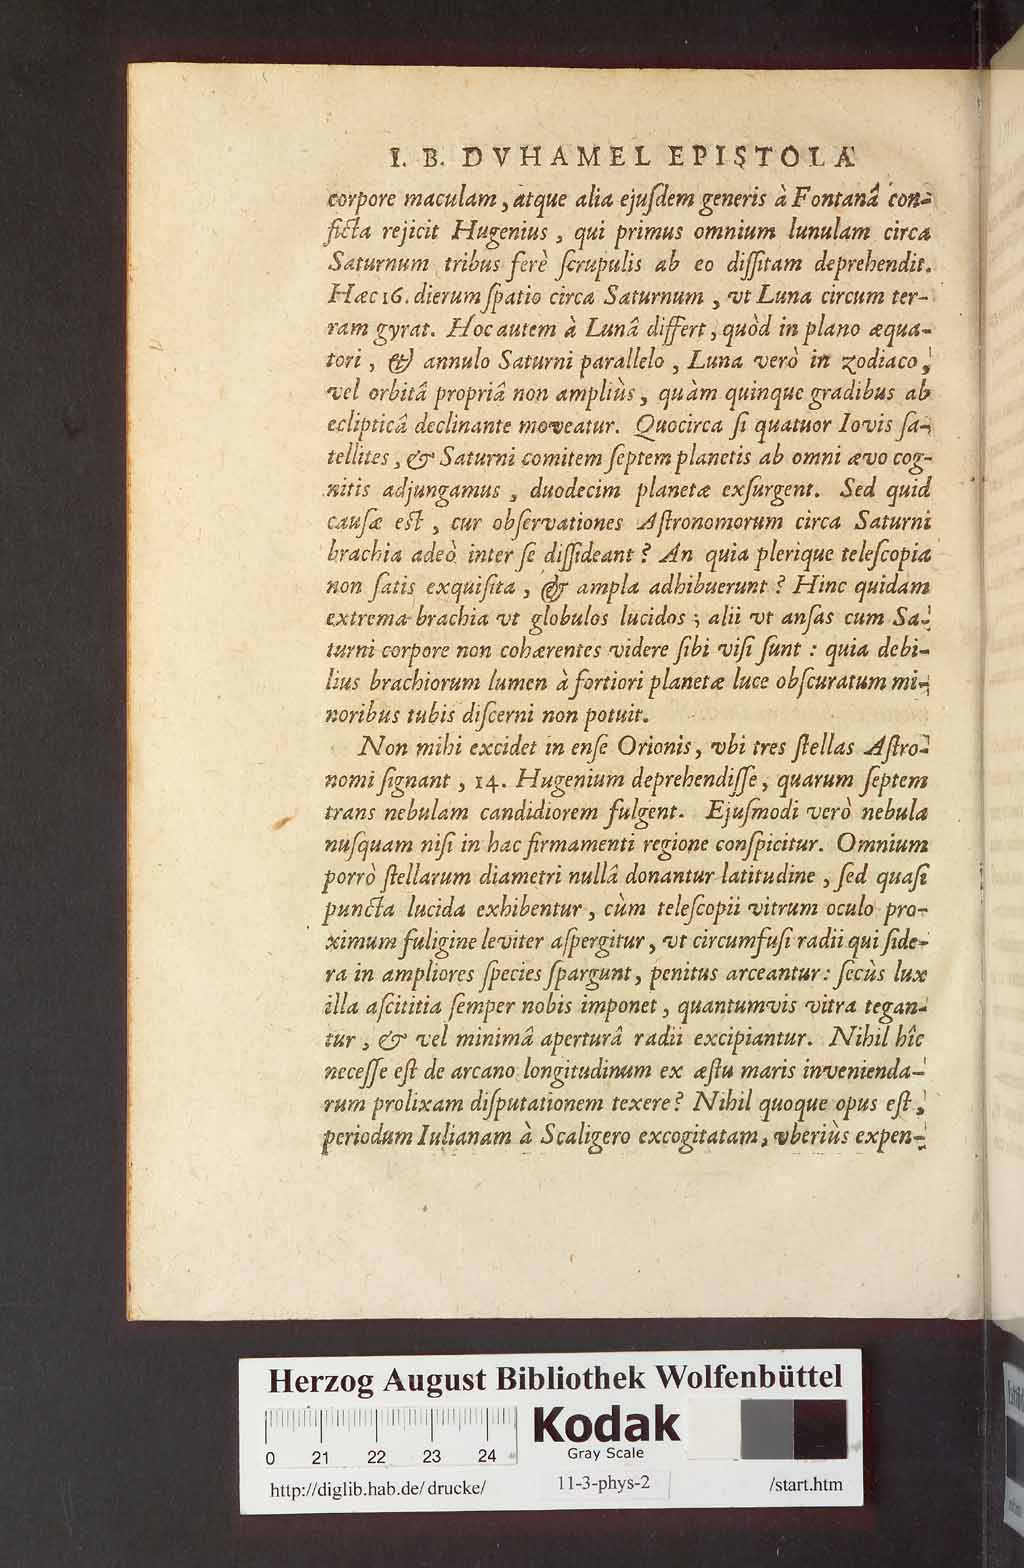 I. B. DVHAMEL EPISTOLA
corpore maculam, atque alia ejuſdem generis à Fontanâ con-
ficta rejicit Hugenius, qui primus omnium lunulam circa
Saturnum tribus ferè ſcrupulis ab eo diſſitam deprehendit.
Hæc 16. dierum ſpatio circa Saturnum, vt Luna circum ter-
ram gyrat. Hoc autem à Lunâ differt, quòd in plano æqua-
tori, & annulo Saturni parallelo, Luna verò in zodiaco,
vel orbitâ propriâ non ampliùs, quàm quinque gradibus ab
eclipticâ declinante moveatur. Quocirca ſi quatuor Iovis ſa-
tellites, & Saturni comitem ſeptem planetis ab omni ævo cog-
nitis adjungamus, duodecim planetæ exſurgent. Sed quid
cauſæ eſt, cur obſervationes Aſtronomorum circa Saturni
brachia adeò inter ſe diſſideant? An quia plerique teleſcopia
non ſatis exquiſita, & ampla adhibuerunt? Hinc quidam
extrema brachia vt globulos lucidos; alii vt anſas cum Sa-
turni corpore non cohærentes videre ſibi viſi ſunt: quia debi-
lius brachiorum lumen à fortiori planetæ luce obſcuratum mi-
noribus tubis diſcerni non potuit.
Non mihi excidet in enſe Orionis, vbi tres ſtellas Aſtro-
nomi ſignant, 14. Hugenium deprehendiſſe, quarum ſeptem
trans nebulam candidiorem fulgent. Ejuſmodi verò nebula
nuſquam niſi in hac firmamenti regione conſpicitur. Omnium
porrò ſtellarum diametri nullâ donantur latitudine, ſed quaſi
puncta lucida exhibentur, cùm teleſcopii vitrum oculo pro-
ximum fuligine leviter aſpergitur, vt circumfuſi radii qui ſide-
ra in ampliores ſpecies ſpargunt, penitus arceantur: ſecùs lux
illa aſcititia ſemper nobis imponet, quantumvis vitra tegan-
tur, & vel minimâ aperturâ radii excipiantur. Nihil hîc
neceſſe eſt de arcano longitudinum ex æſtu maris invenienda-
rum prolixam diſputationem texere? Nihil quoque opus eſt,
periodum Iulianam à Scaligero excogitatam, vberiùs expen-
Herzog August Bibliothek Wolfenbüttel
0 21 22 23 24
Kodak
Gray Scale
http://diglib.hab.de/drucke/ 11-3-phys-2 /start.htm